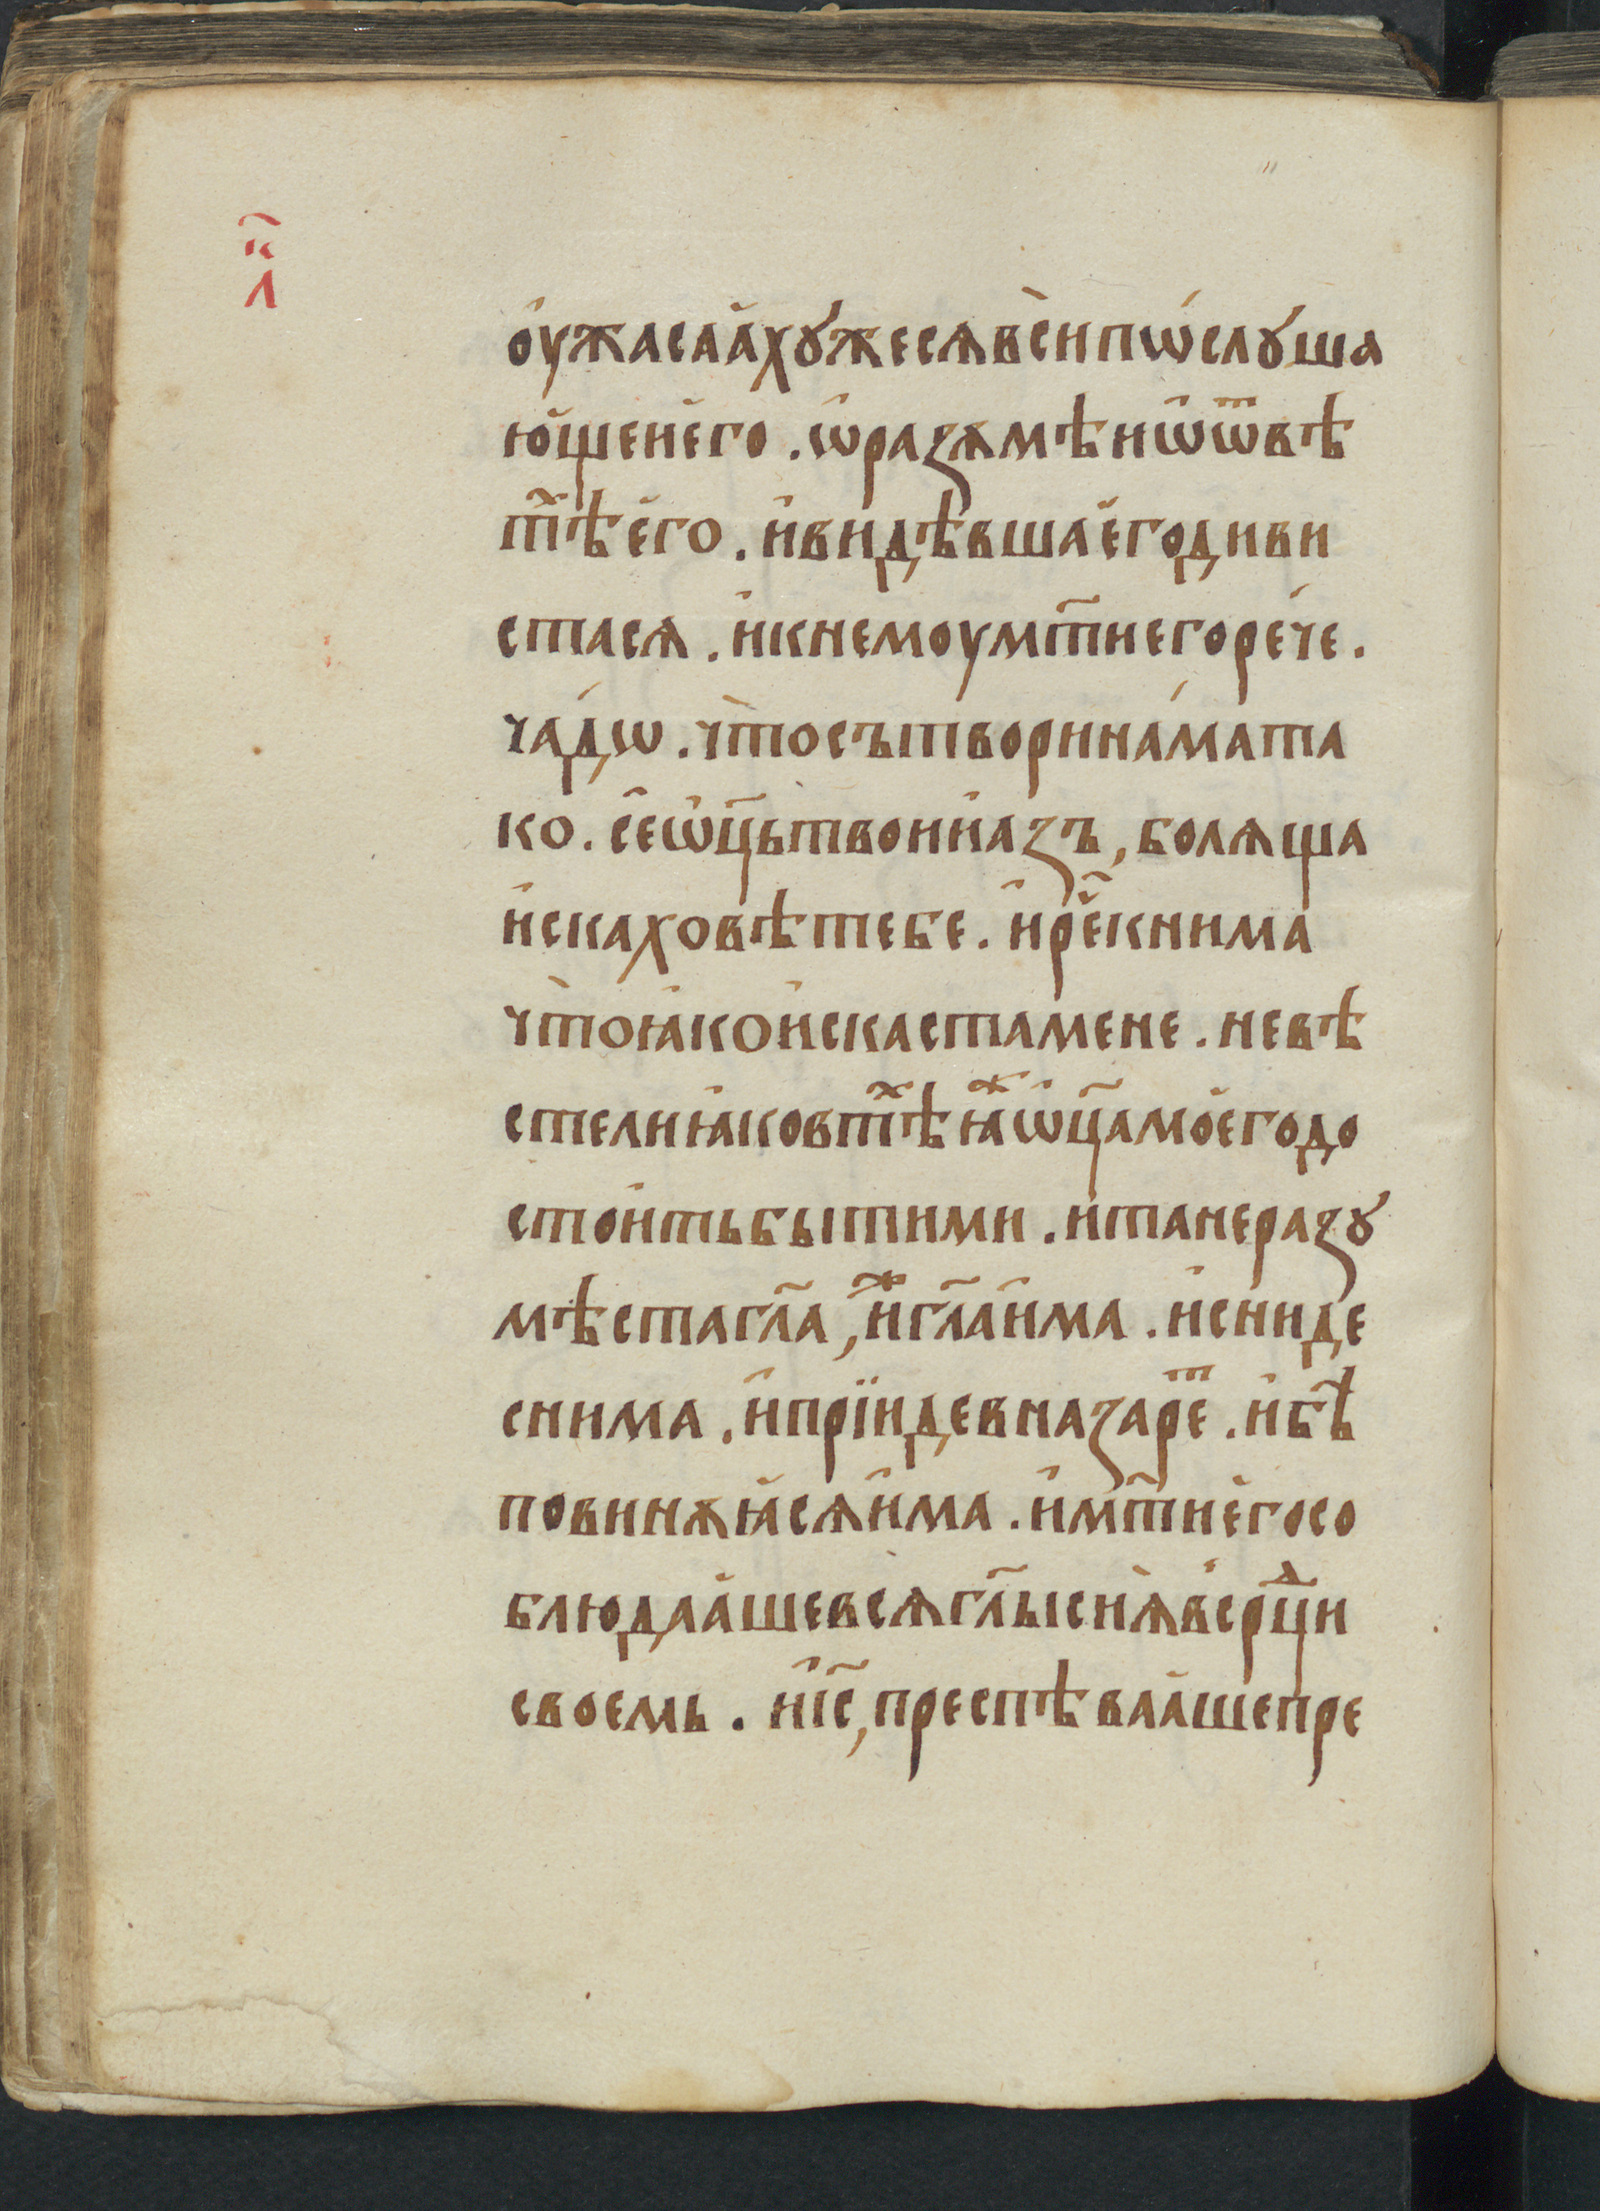 к҃
л
о҆ужасаа҆хꙋжесѧвсѝипѡ́слꙋша
ю҆щеие҆го . ѡ҆разѫмѣиѡ҆ѿвѣ
т҃ѣхе҆го . и҆видѣвшае҆годиви
стасѧ . и҆кнемоум҃тиегорéче .
ча́дѡ . что̀сътворина́мата
ко . се҆ѡ҆ц҃ьтвоии҆азъ , болѧща
и҆скаховѣтебе . и҆ре҃книма
что̀ꙗ҆кои҆скастамене . невѣ
стелиꙗ҆ковт҃ѣхꙗ҆жѡ҆ц҃амое҆годо
стои҆тьбытими . и҆танеразꙋ
мѣстагл҃а , и҆жгл҃аи҆ма . и҆сниде
снима . и҆прїидевназаре҃т . и҆бѣ҃
повинѫꙗ҆сѧи҆ма . и҆м҃тие҆госо
блюдаа҆шевсѧгл҃ысиѧ҆всердц҃и
своемь . иі҆с҃ , преспѣваа҆шепре